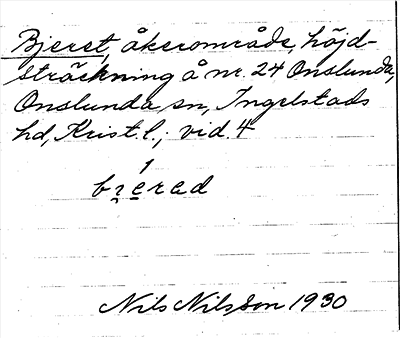 Bjerst, åkerområde, höjd-
sträckning å nr. 24 Onslunda,
Onslunda sn, Ingelstads
hd, Krist. l.; vid. 4
1
Nils Nilsson 1930